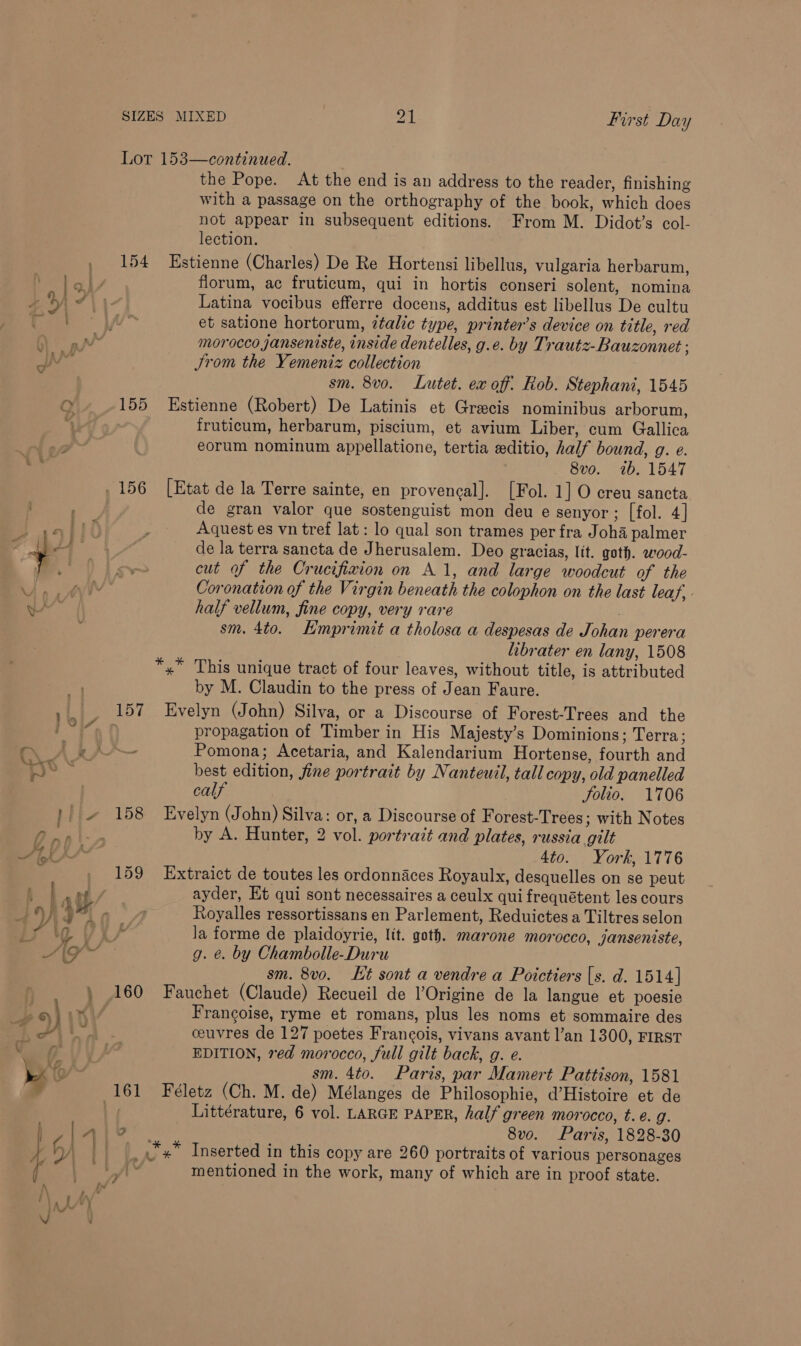 SIZES MIXED 21 First Day
Lot 153—continued.
the Pope. At the end is an address to the reader, finishing
with a passage on the orthography of the book, which does
not appear in subsequent editions. From M. Didot's col-
lection.
154 Estienne (Charles) De Re Hortensi libellus, vulgaria herbarum,
florum, ac fruticum, qui in hortis conseri solent, nomina
Latina vocibus efferre docens, additus est libellus De cultu
et satione hortorum, italic type, printer's device on title, red
morocco janseniste, inside dentelles, g.e. by Trautz-Bauzonnet;
from the Yemeniz collection
sm. 8vo. Lutet. ex off. Rob. Stephani, 1545
155 Estienne (Robert) De Latinis et Græcis nominibus arborum,
fruticum, herbarum, piscium, et avium Liber, cum Gallica
eorum nominum appellatione, tertia æditio, half bound, g. e.
8vo. ib. 1547
156 [Etat de la Terre sainte, en provençal]. [Fol. 1] O creu sancta
de gran valor que sostenguist mon deu e senyor; [fol. 4]
Aquest es vn tref lat: lo qual son trames per fra Johā palmer
de la terra sancta de Jherusalem. Deo gracias, lit. goth. wood-
cut of the Crucifixion on A 1, and large woodcut of the
Coronation of the Virgin beneath the colophon on the last leaf,
half vellum, fine copy, very rare
sm. 4to. Emprimit a tholosa a despesas de Johan perera
librater en lany, 1508
*** This unique tract of four leaves, without title, is attributed
by M. Claudin to the press of Jean Faure.
157 Evelyn (John) Silva, or a Discourse of Forest-Trees and the
propagation of Timber in His Majesty's Dominions; Terra;
Pomona; Acetaria, and Kalendarium Hortense, fourth and
best edition, fine portrait by Nanteuil, tall copy, old panelled
calf folio. 1706
158 Evelyn (John) Silva: or, a Discourse of Forest-Trees; with Notes
by A. Hunter, 2 vol. portrait and plates, russia gilt
4to. York, 1776
159 Extraict de toutes les ordonnāces Royaulx, desquelles on se peut
ayder, Et qui sont necessaires a ceulx qui frequētent les cours
Royalles ressortissans en Parlement, Reduictes a Tiltres selon
la forme de plaidoyrie, lit. goth. marone morocco, janseniste,
g. e. by Chambolle-Duru
sm. 8vo. Et sont a vendre a Poictiers [s. d. 1514]
160 Fauchet (Claude) Recueil de l'Origine de la langue et poesie
Françoise, ryme et romans, plus les noms et sommaire des
œuvres de 127 poetes François, vivans avant l'an 1300, FIRST
EDITION, red morocco, full gilt back, g. e.
sm. 4to. Paris, par Mamert Pattison, 1581
161 Féletz (Ch. M. de) Mélanges de Philosophie, d'Histoire et de
Littérature, 6 vol. LARGE PAPER, half green morocco, t. e. g.
8vo. Paris, 1828-30
*** Inserted in this copy are 260 portraits of various personages
mentioned in the work, many of which are in proof state.